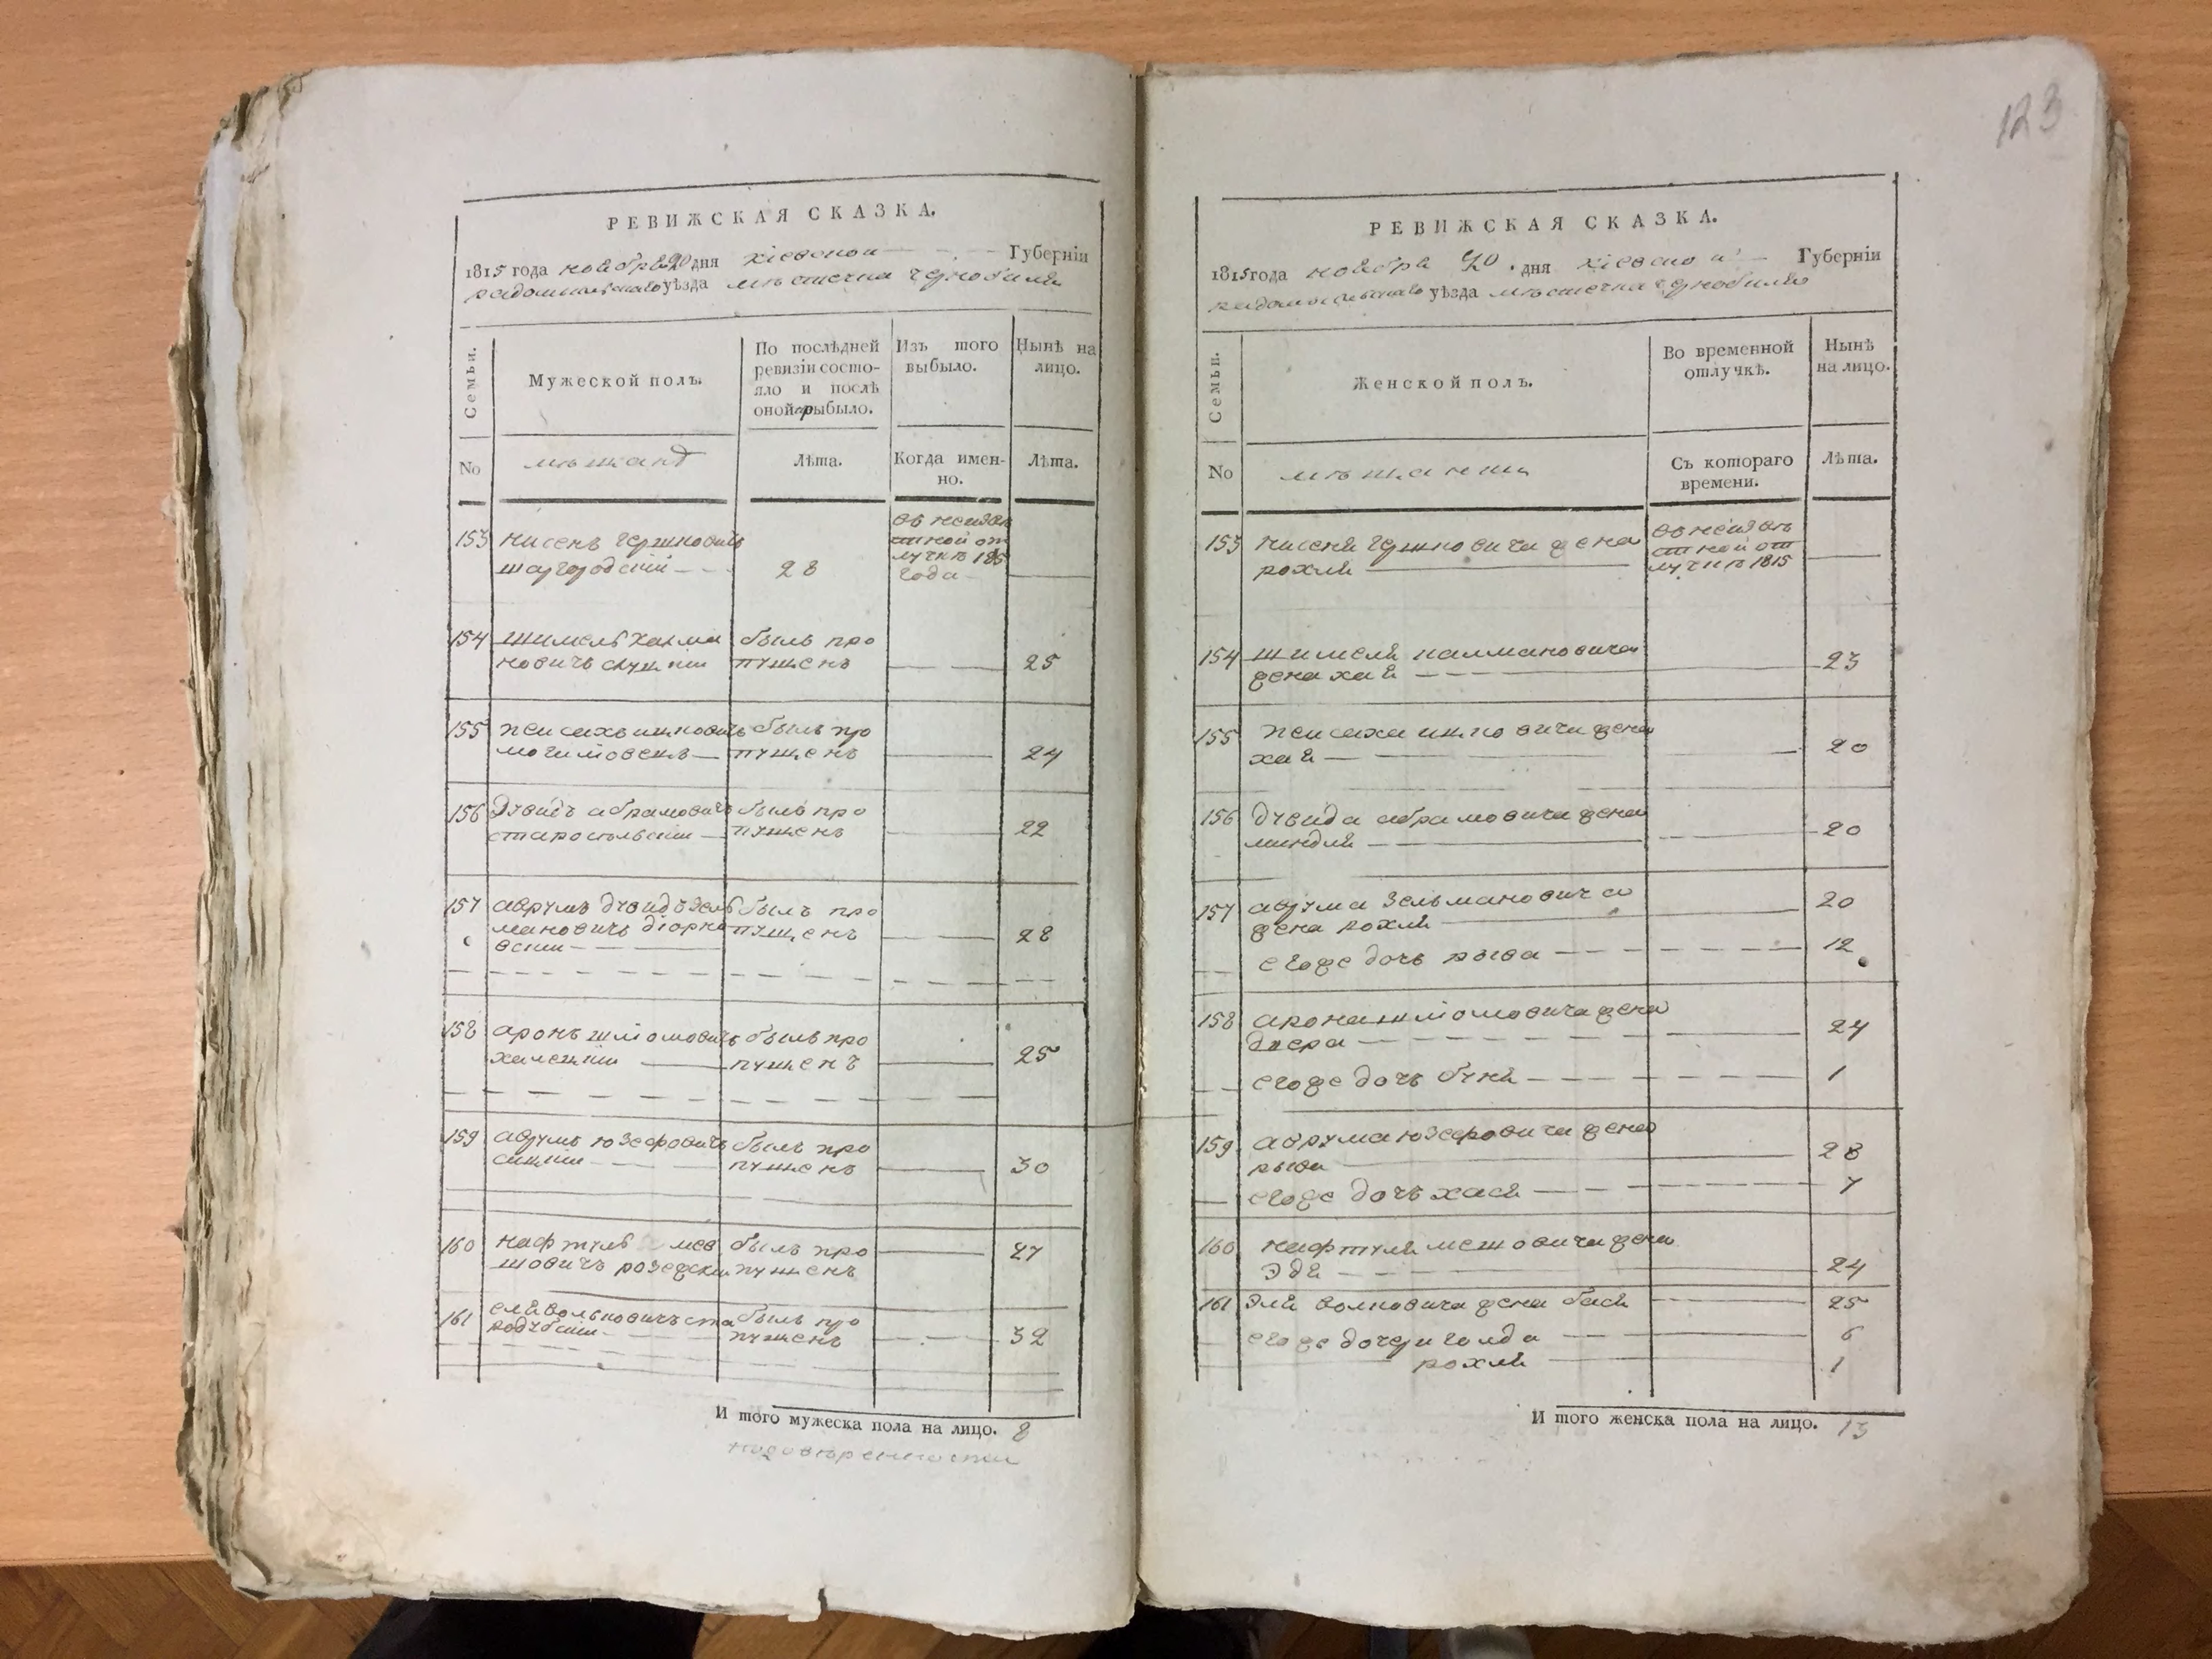 РЕВИЖСКАЯ СКАЗКА.
1815 года ноября 20 дня кіевской Губерніи
радомысльскаго уѣзда мѣстечка чернобиля
Семьи.
Мужеской полъ.
По послѣдней
ревизіи состо-
яло и послѣ
оной прыбыло.
Изъ того
выбыло.
Нынѣ на
лицо.
No
мѣщанѣ
Лѣта.
Когда имен-
но.
Лѣта.
153 нисенъ гершковичъ
шаргородскіи 28
в неизвѣ
стной от
лучкѣ 1815
года
154 шимель калма
новичъ слуцкіи
былъ про
пущенъ 25
155 пейсахъ ицковичъ
могилювскъ
былъ про
пущенъ 24
156 дувидъ абрамовичъ
старосельскіи
былъ про
пущенъ 22
157 аврумъ дувидъ зель
мановичъ
былъ про
пущенъ 28
158 аронъ шліомовичъ
былъ про
пущенъ 25
159 аврумъ юзефовичъ
былъ про
пущенъ 30
160 нафтуль мев
шовичъ
былъ про
пущенъ 27
161 еля вольковичъ ста
родубскіи
былъ про
пущенъ 32
И того мужеска пола на лицо. 8
123
РЕВИЖСКАЯ СКАЗКА.
1815 года ноября 20 дня кіевской Губерніи
радомысльскаго уѣзда мѣстечка чернобиля
Семьи.
Женской полъ.
Во временной
отлучкѣ.
Нынѣ
на лицо.
No
мѣщанки
Съ котораго
времени.
Лѣта.
153 нисеня гершковича жена
рохля
в неизвѣ
стной от
лучкѣ 1815
154 шимеля калмановича
жена хая 23
155 пейсаха ицковича жена
хая 20
156 дувида абрамовича жена
миндля 20
157 аврума зельмановича
жена рохля 20
егоже дочь рыва 12
158 арона шліомовича жена
двера 24
егоже дочь буня 1
159 аврума юзефовича жена
рыва 28
егоже дочь хася 7
160 нафтуля мешовича жена
эдя 24
161 эля волковича жена бася 25
егоже дочери голда 6
рохля 1
И того женска пола на лицо. 13